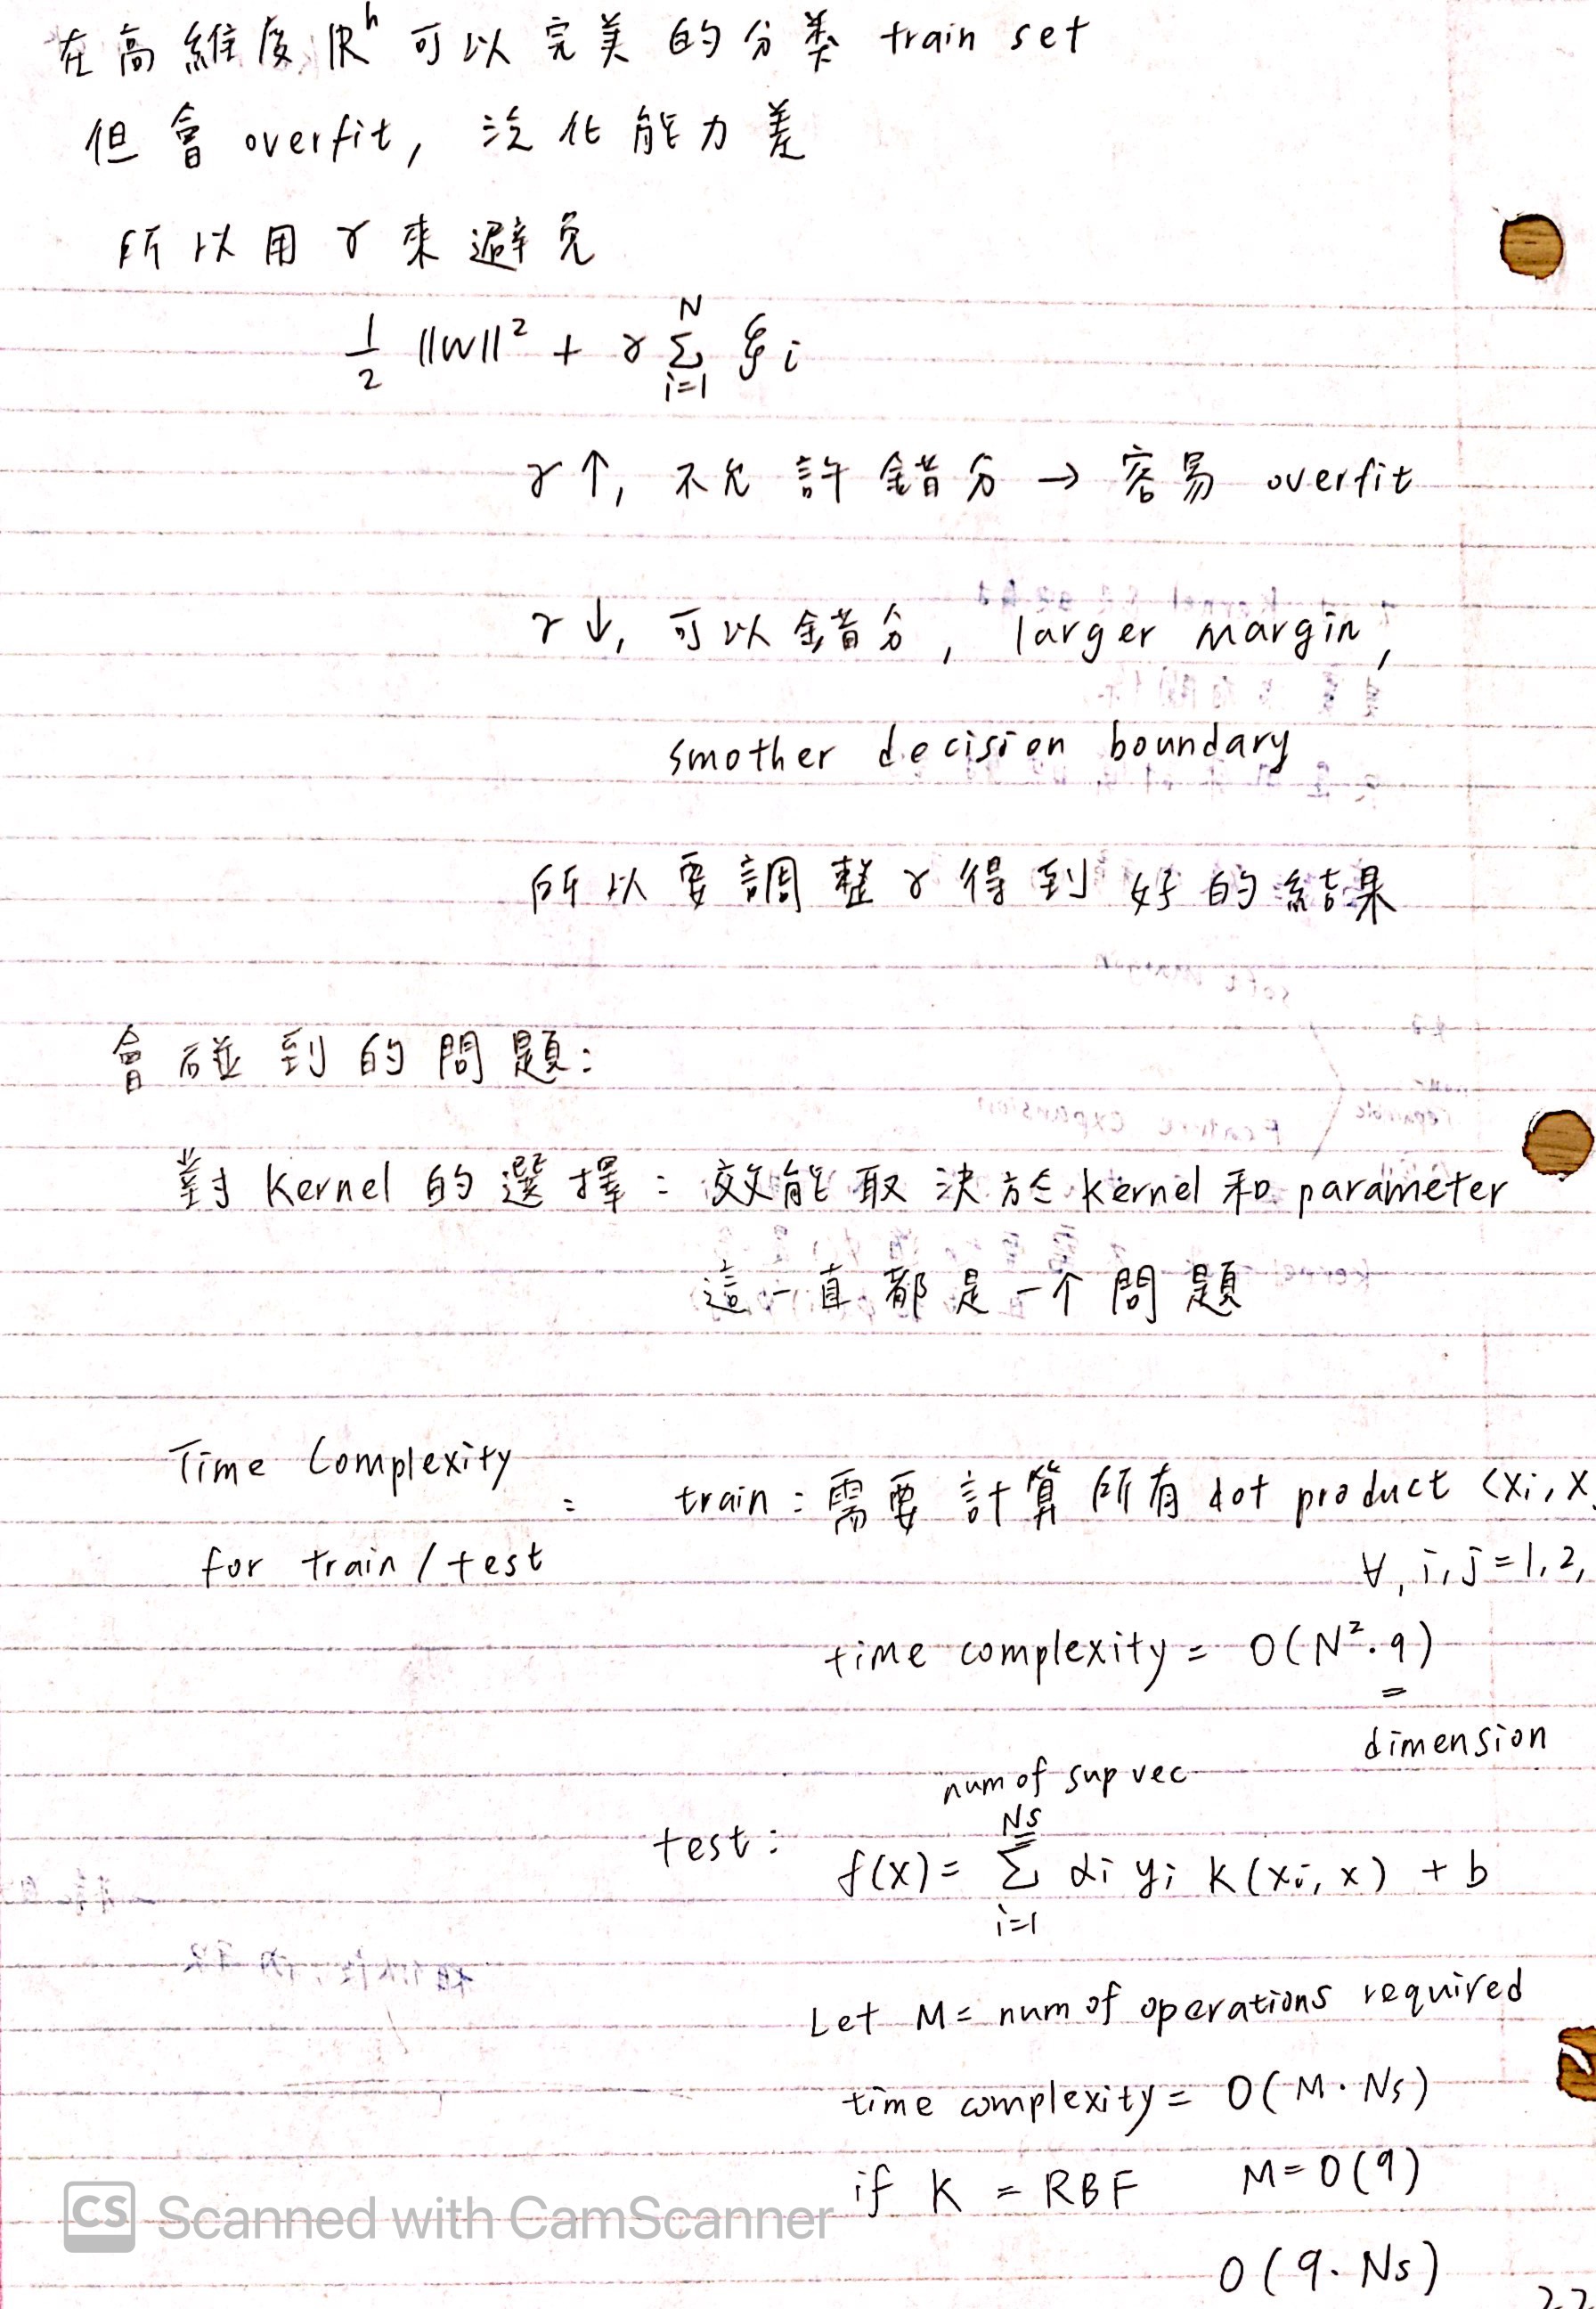 在高維度 ℝʰ 可以完美的分类 train set
但會 overfit, 泛化能力差
所以用 γ 來避免
1/2 ||W||² + γ Σ_{i=1}^{N} ξi
γ↑, 不允許錯分 → 容易 overfit
γ↓, 可以錯分, larger margin,
smother decision boundary
所以要調整 γ 得到好的結果
會碰到的問題:
對 kernel 的選擇: 效能取決於 kernel 和 parameter
這一直都是一个問題
Time Complexity for train/test : train: 需要計算所有 dot product (xi, x
∀, i, j = 1, 2,
time complexity = O(N²·q)
dimension
num of sup vec
test: f(x) = Σ_{i=1}^{Ns} αi yi K(xi, x) + b
Let M = num of operations required
time complexity = O(M·Ns)
if K = RBF M = O(q)
O(q·Ns)
CS Scanned with CamScanner